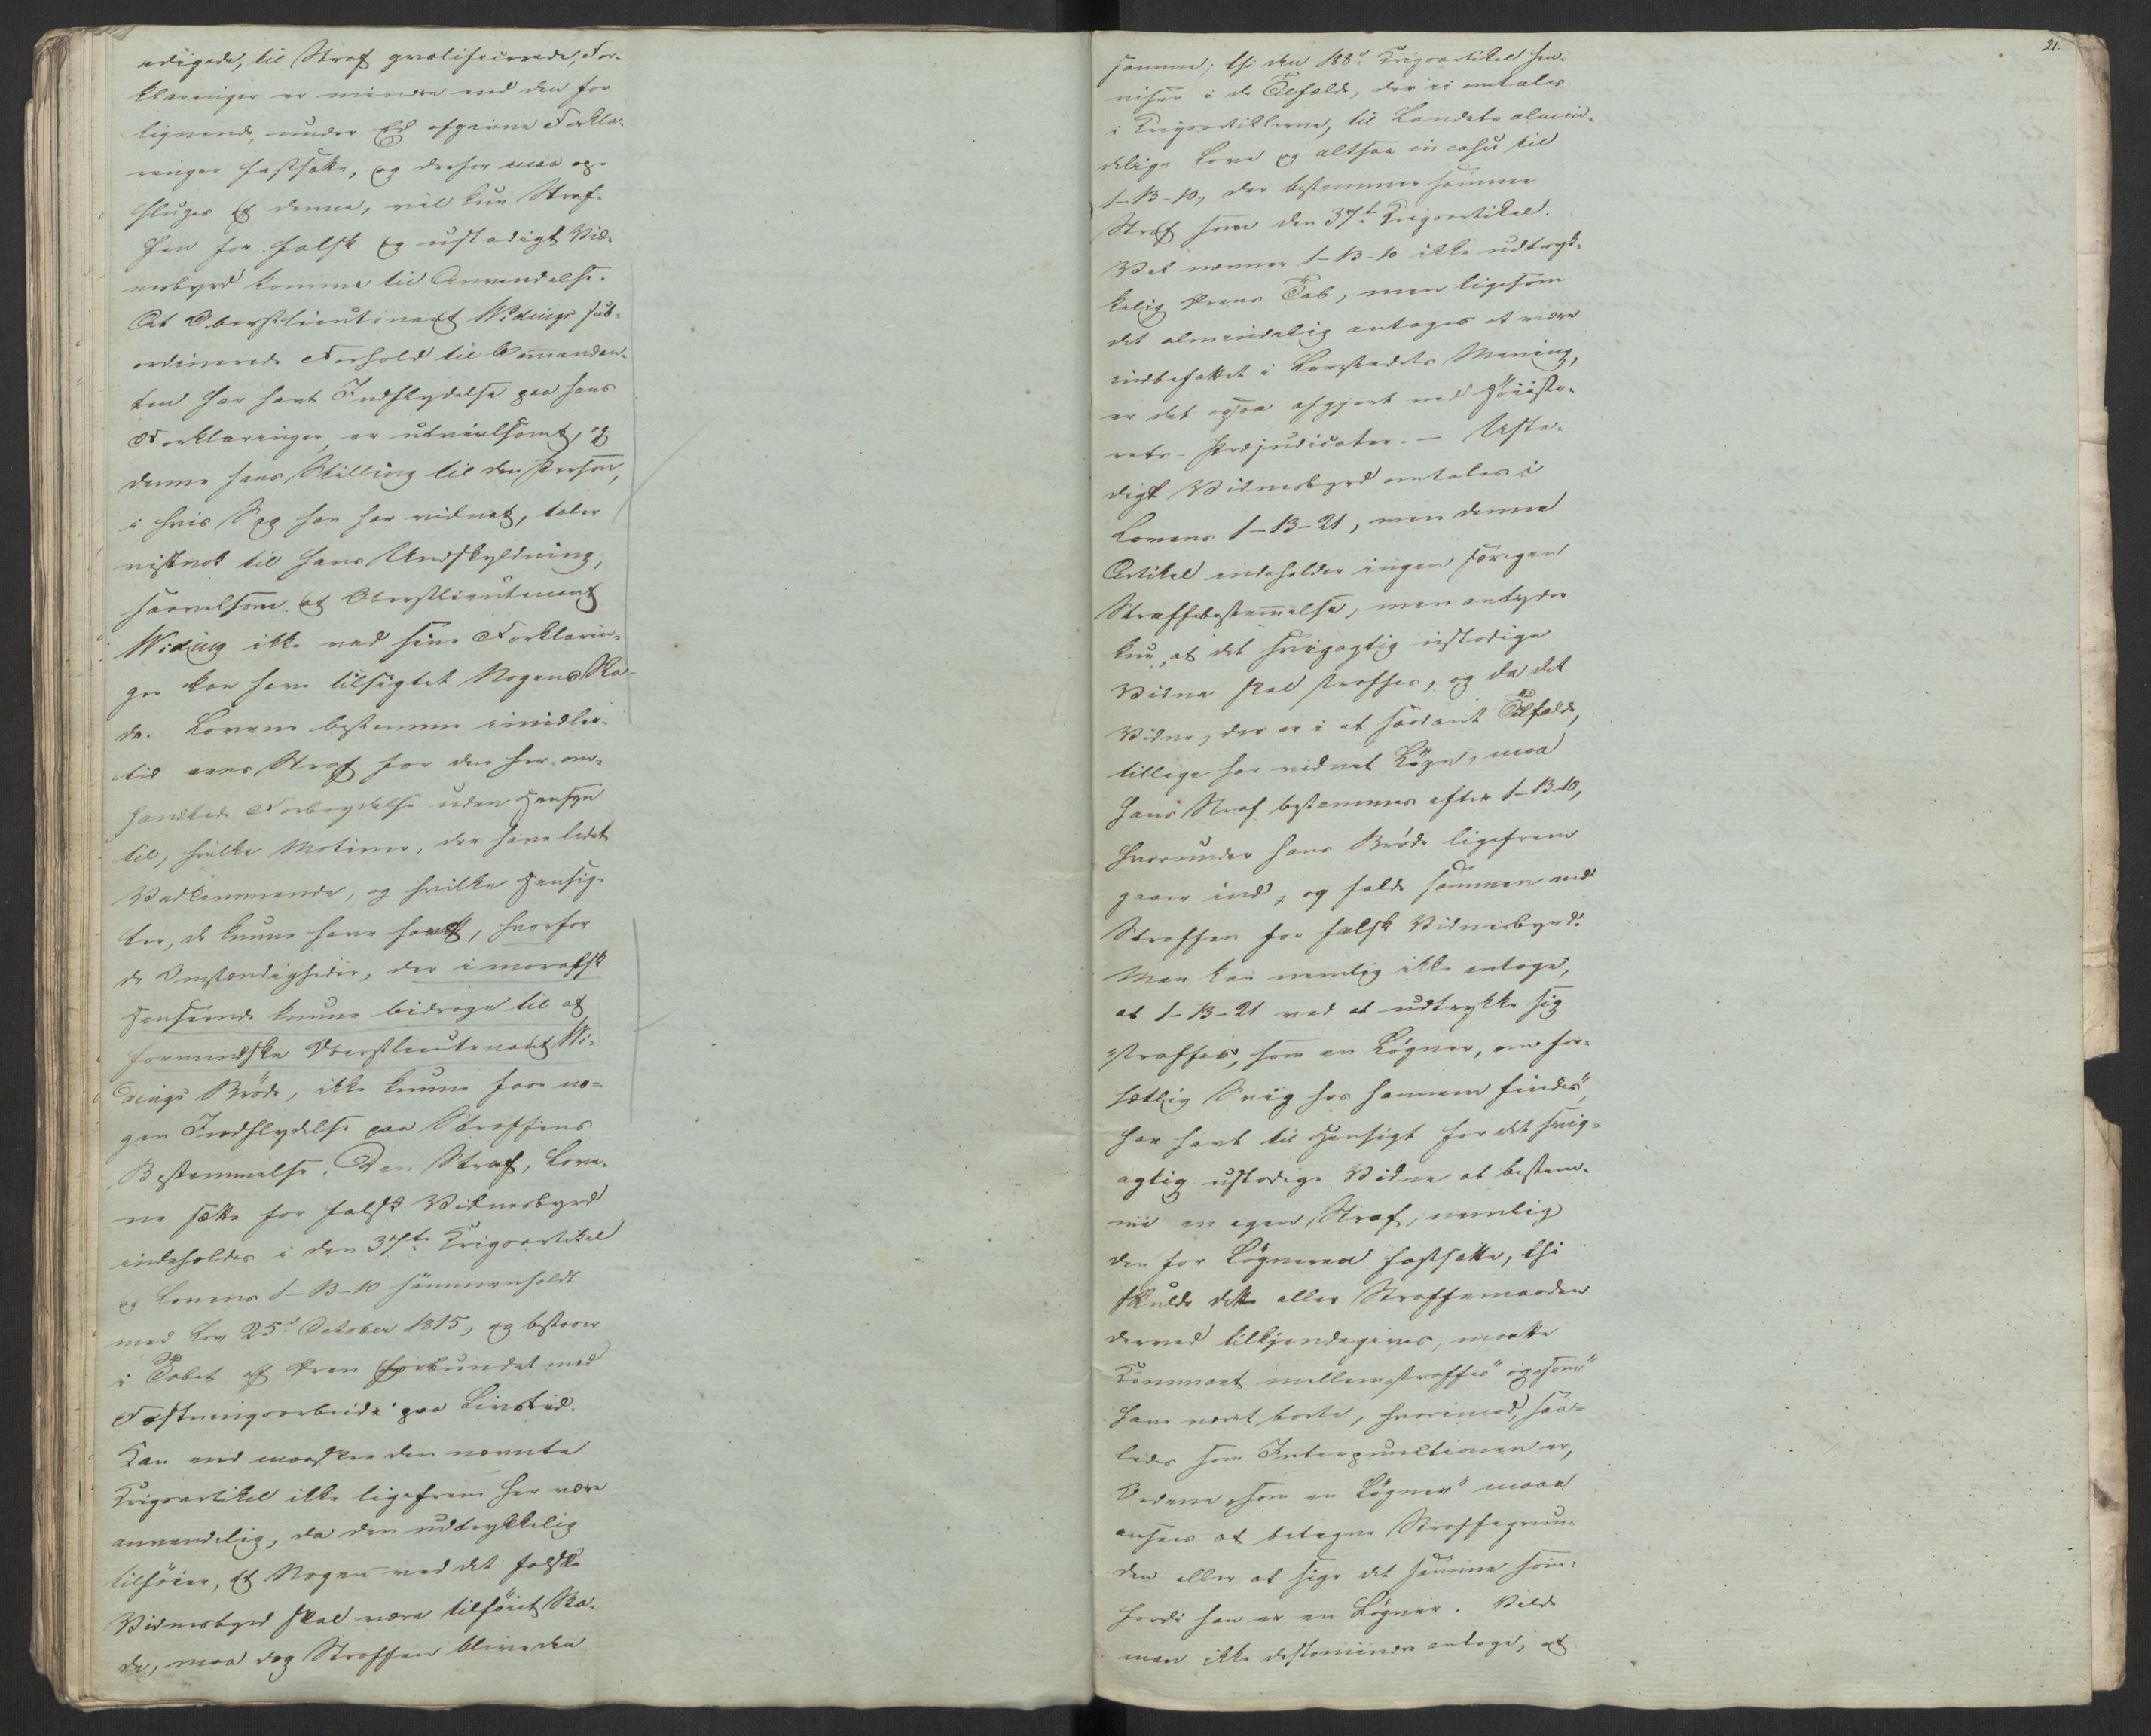 edigede, til Straf qvalificerede, For-
klaringer er mindre end den for
lignende, under Ed afgivne Forkla-
ringer fastsatte, og derfor maa op-
sluges af denne, vil kun Straf-
fen for falsk og ustadigt Vid-
nesbyrd komme til Anvendelse.
At Oberstlieutenant Widings sub-
ordinerede Forhold til Commandan-
ten har havt Indflydelse paa hans
Forklaringer, er utvivlsomt, og
denne hans Stilling til den Person,
i hvis Sag han har vidnet, taler
vistnok til hans Undskyldning,
saavelsom at Oberstlieutenant
Widing ikke ved sine Forklarin-
ger kan have tilsigtet Nogens Ska-
de. Lovene bestemme imidler-
tid eens Straf for den her om-
handlede Forbrydelse uden Hensyn
til, hvilke Motiver, der have ledet
Vedkommende, og hvilke Hensig-
ter, de kunne have havt, hvorfor
de Omstændigheder, der i moralsk
Henseende kunne bidrage til at
formindske Oberstlieutenant Wi-
dings Brøde, ikke kunne faae no-
gen Indflydelse paa Straffens
Bestemmelse. Den Straf, Love-
ne sætte for falsk Vidnesbyrd
indeholdes i den 37te Krigsartikel
og Lovens 1-13-10 sammenholdt
med Lov 25d October 1815, og bestaaer
i Tabet af Æren forbundet med
Fæstningsarbeide paa Livstid.
Kan end maaskee den nævnte
Krigsartikel ikke ligefrem her være
anvendelig, da den udtrykkelig
tilføier, at Nogen ved det falske
Vidnesbyrd skal være tilføiet Ska-
de, maa dog Straffen blive den
21.
samme; thi den 188d Krigsartikel hen-
viser i de Tilfælde, der ei omtales
i Krigsartiklerne, til Landets almin-
delige Love og altsaa in casu til
1-13-10, der bestemmer samme
Straf som den 37te Krigsartikel.
Vel nævner 1-13-10 ikke udtryk-
kelig Ærens Tab, men ligesom
det almindelig antages at være
indbefattet i Lovstedets Mening,
er det ogsaa afgjort ved Høieste-
rets-Præjudicater. — Usta-
digt Vidnesbyrd omtales i
Lovens 1-13-21, men denne
Artikel indeholder ingen særegen
Straffebestemmelse, men antyder
kun, at det svigagtig ustadige
Vidne skal straffes, og da det
Vidne, der er i et saadant Tilfælde,
tillige har vidnet Løgn, maa
hans Straf bestemmes efter 1-13-10,
hvorunder hans Brøde ligefrem
gaaer ind, og falde sammen med
Straffen for falsk Vidnesbyrd.
Man kan nemlig ikke antage,
at 1-13-21 ved at udtrykke sig
"straffes, som en Løgner, om for-
sætlig Svig hos hannem findes",
har havt til Hensigt for det svig-
agtig ustadige Vidne at bestem-
me en egen Straf, nemlig
den for Løgneren fastsatte, thi
skulde dette eller Straffemaaden
derved tilkjendegives, maatte
Kommaet mellem "straffes" og "som"
have været borte, hvorimod, saa-
ledes som Interpunctionen er,
Ordene "som en Løgner" maae
ansees at betegne Straffegrun-
den eller at sige det samme som:
fordi han er en Løgner. Vilde
man ikke destomindre antage, at